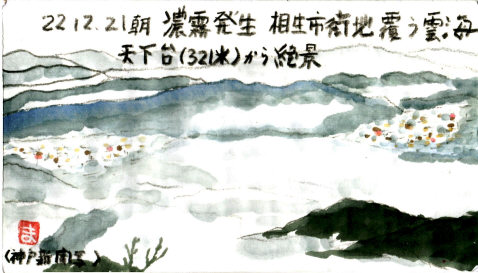 22.12.21朝 濃霧発生 相生市街地覆う雲海
天下台(321米)から絶景
ま
(神戸新聞より)